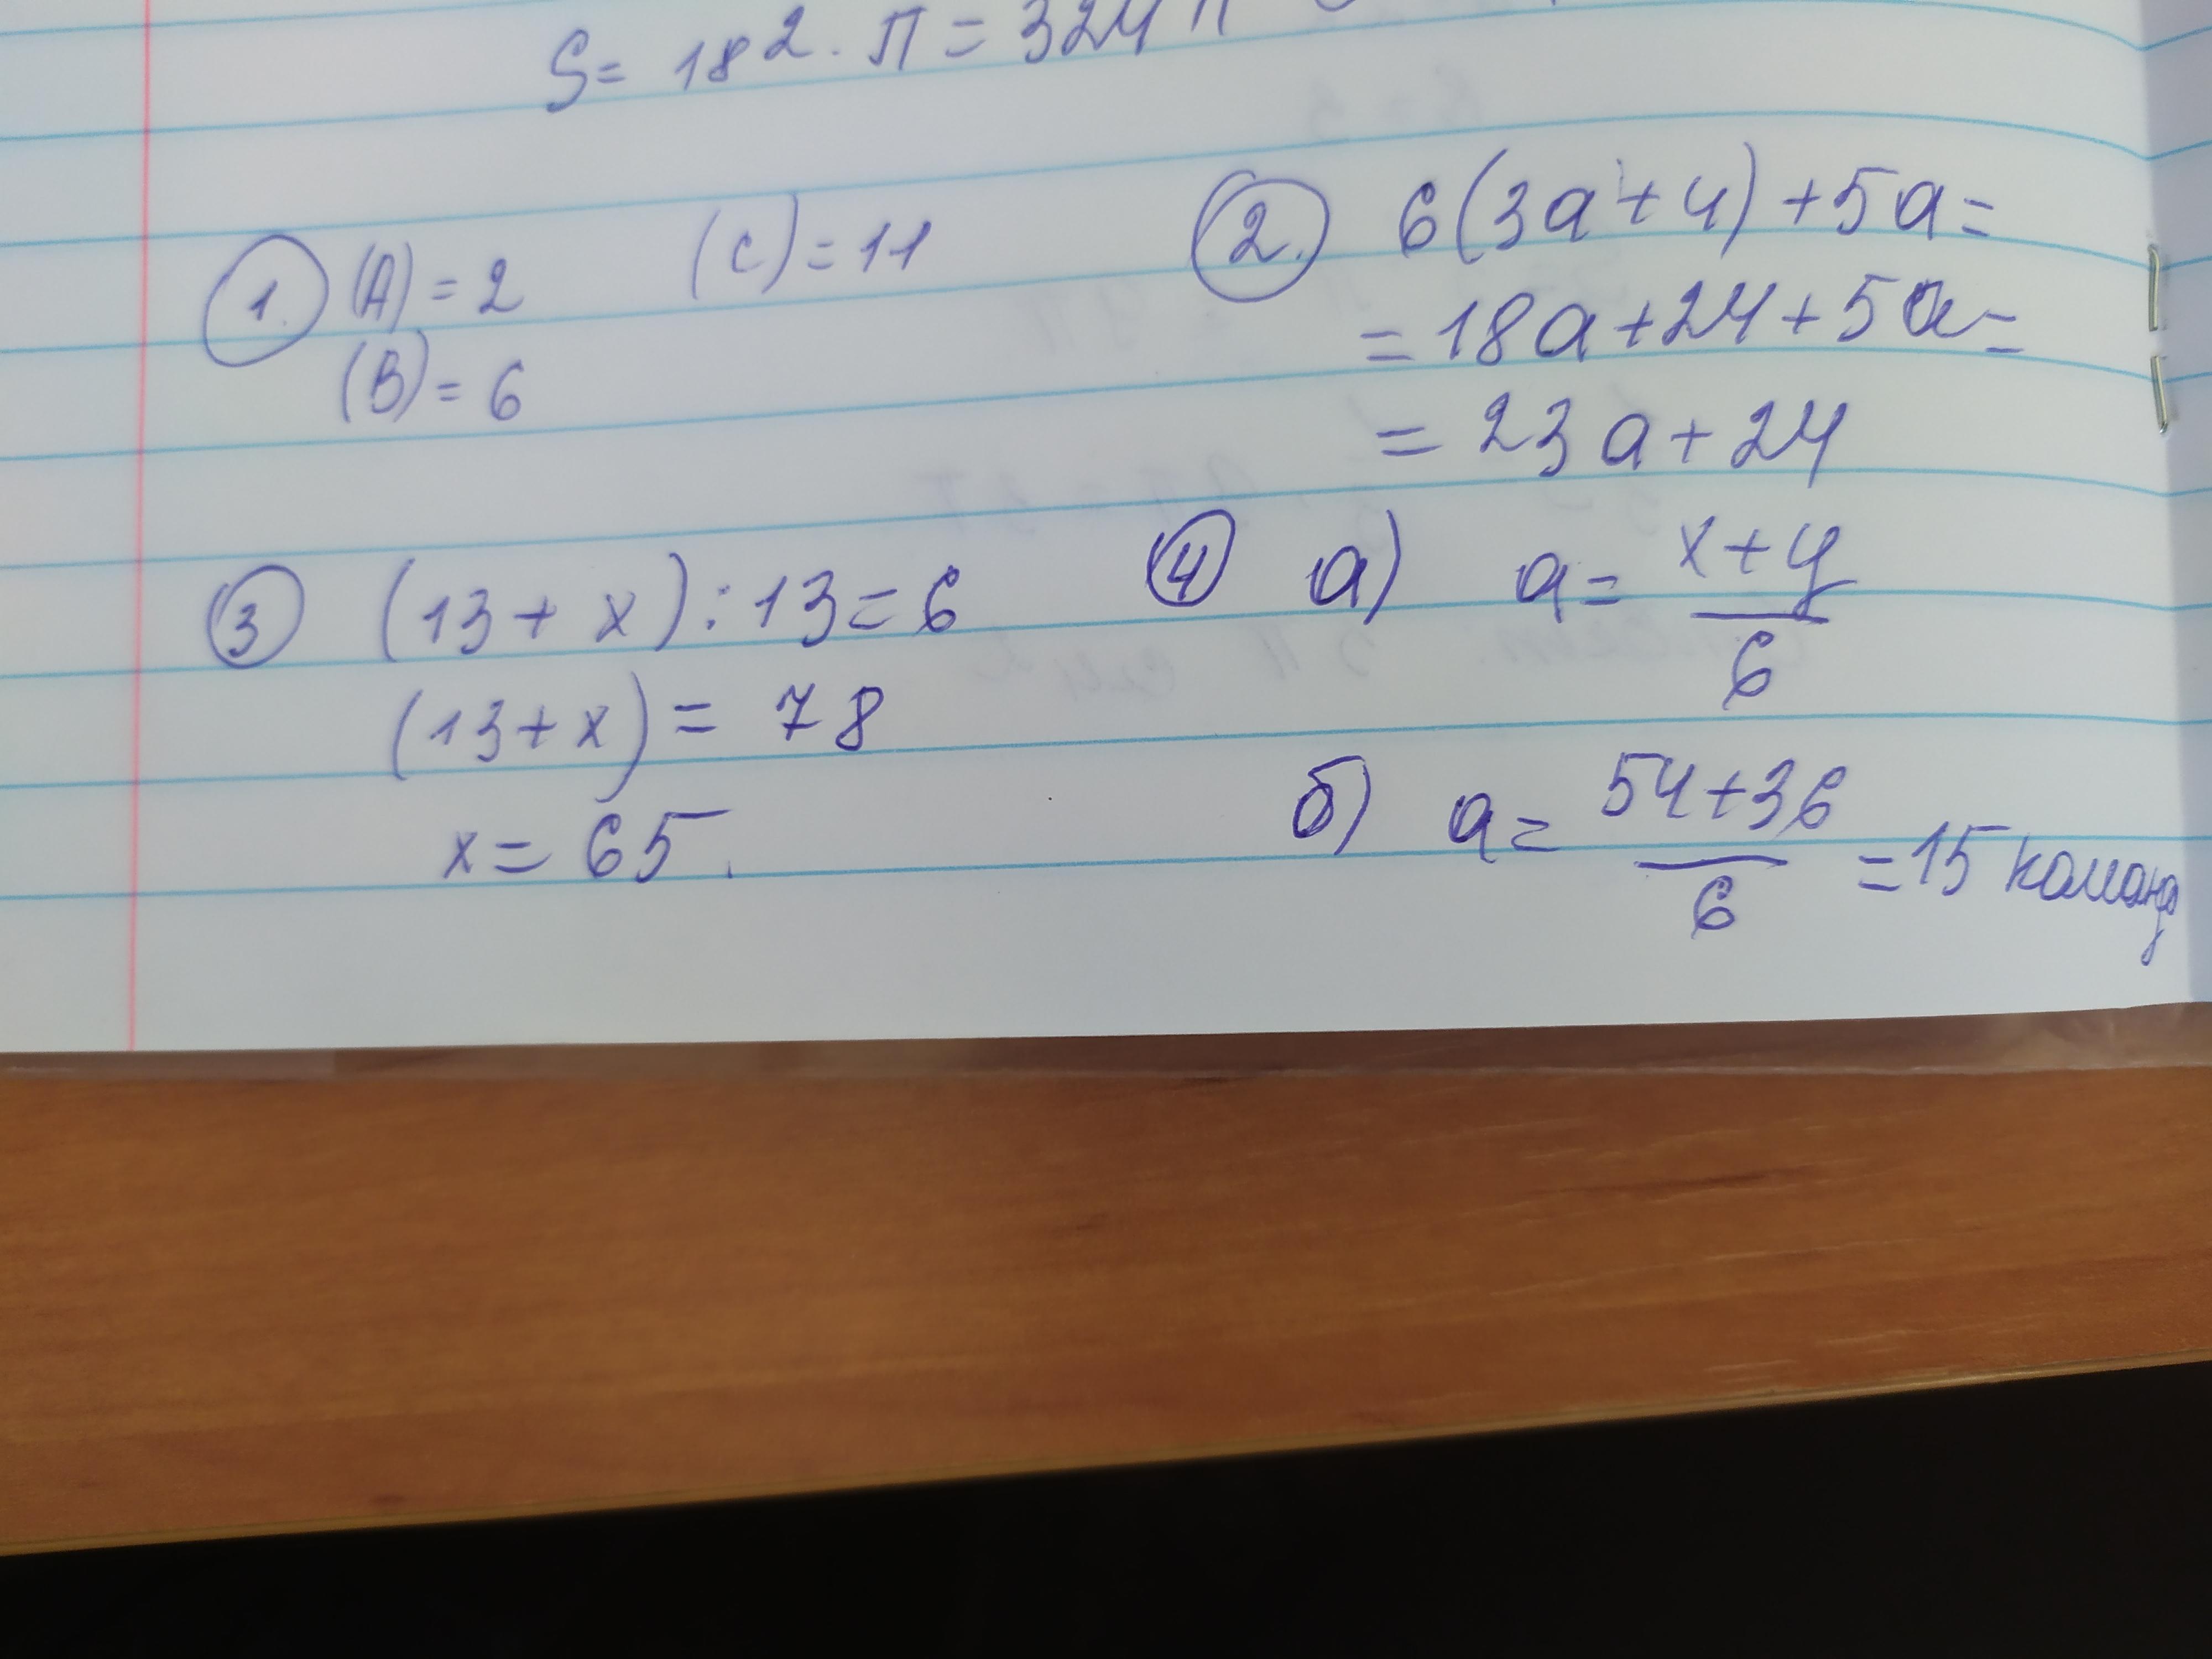 S = 18² · π = 324 π
1. (A) = 2 (C) = 11
(B) = 6
2. 6(3a + 4) + 5a =
= 18a + 24 + 5a =
= 23a + 24
3 (13 + x) : 13 = 6
(13 + x) = 78
x = 65.
4 а) a = (x + y) / 6
б) a = (54 + 36) / 6 = 15 команд